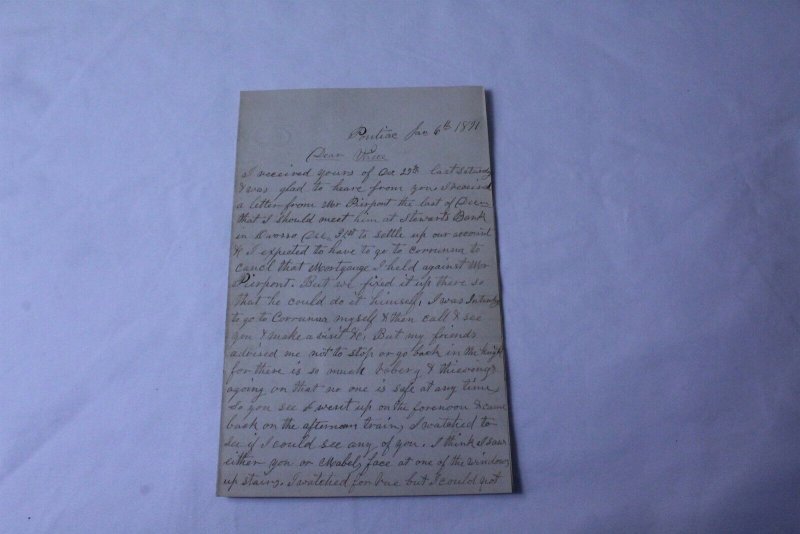 Pontiac Jan 6th 1891
Dear
I received yours of Dec 29th last Saturday
& was glad to heare from you. I received
a letter from Mr Pierpont the last of Decm
that I should meet him at Stewarts Bank
in Owosso Dec. 31st to settle up our account
& I expected to have to go to corrunna to
cancl that Mortgauge I held against Mr
Pierpont. But we fixed it up there so
that he could do it himself, I was
to go to Corrunna myself & then call & see
you & make a visit &c, But my friends
advised me not to stop or go back in the night
for there is so much & thieveing
agoing on that no one is safe at any time,
So you see I went up on the forenoon & came
back on the afternoon train, I watched to
see if I could see any of you. I think I saw
either you or Mabels face at one of the windows
up stairs. I watched for but I could not